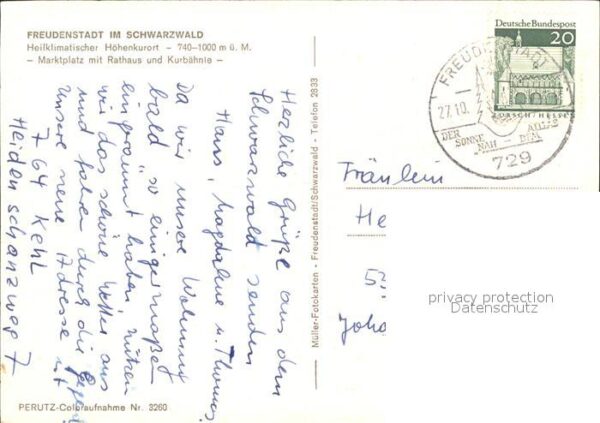 FREUDENSTADT IM SCHWARZWALD
Heilklimatischer Höhenkurort – 740–1000 m ü. M.
– Marktplatz mit Rathaus und Kurbähnle –
Herzliche Grüße aus dem
Schwarzwald senden
Hans, Magdalene u. Thomas
Da wir unsere Wohnung
bald so einigermaßen
eingeräumt haben, nützen
wir das schöne Wetter aus
und fahren durch die Gegend
Unsere neue Adresse ist
764 Kehl
Heidenschanzweg 7
PERUTZ-Coloraufnahme Nr. 3260
Müller-Fotokarten - Freudenstadt/Schwarzwald - Telefon 2833
Deutsche Bundespost
20
LORSCH/HESSEN
FREUDENSTADT
27.10.
DER SONNE NAH – DEM ALLTAG
729
Fräulein
He
Joha
privacy protection
Datenschutz